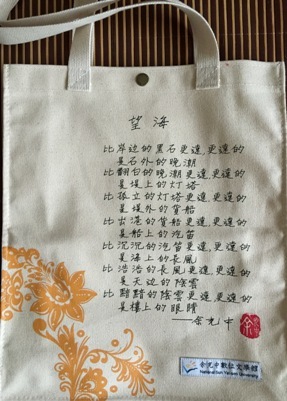 望海
比岸边的黑石更遠,更遠的
是石外的晚潮
比翻白的晚潮更遠,更遠的
是堤上的灯塔
比孤立的灯塔更遠,更遠的
是堤外的貨船
比出港的貨船更遠,更遠的
是船上的汽笛
比沉沉的汽笛更遠,更遠的
是海上的長風
比浩浩的長風更遠,更遠的
是天边的陰雲
比黯黯的陰雲更遠,更遠的
是樓上的眼睛
——余光中
余
余光中數位文學館
National Sun Yat-sen University